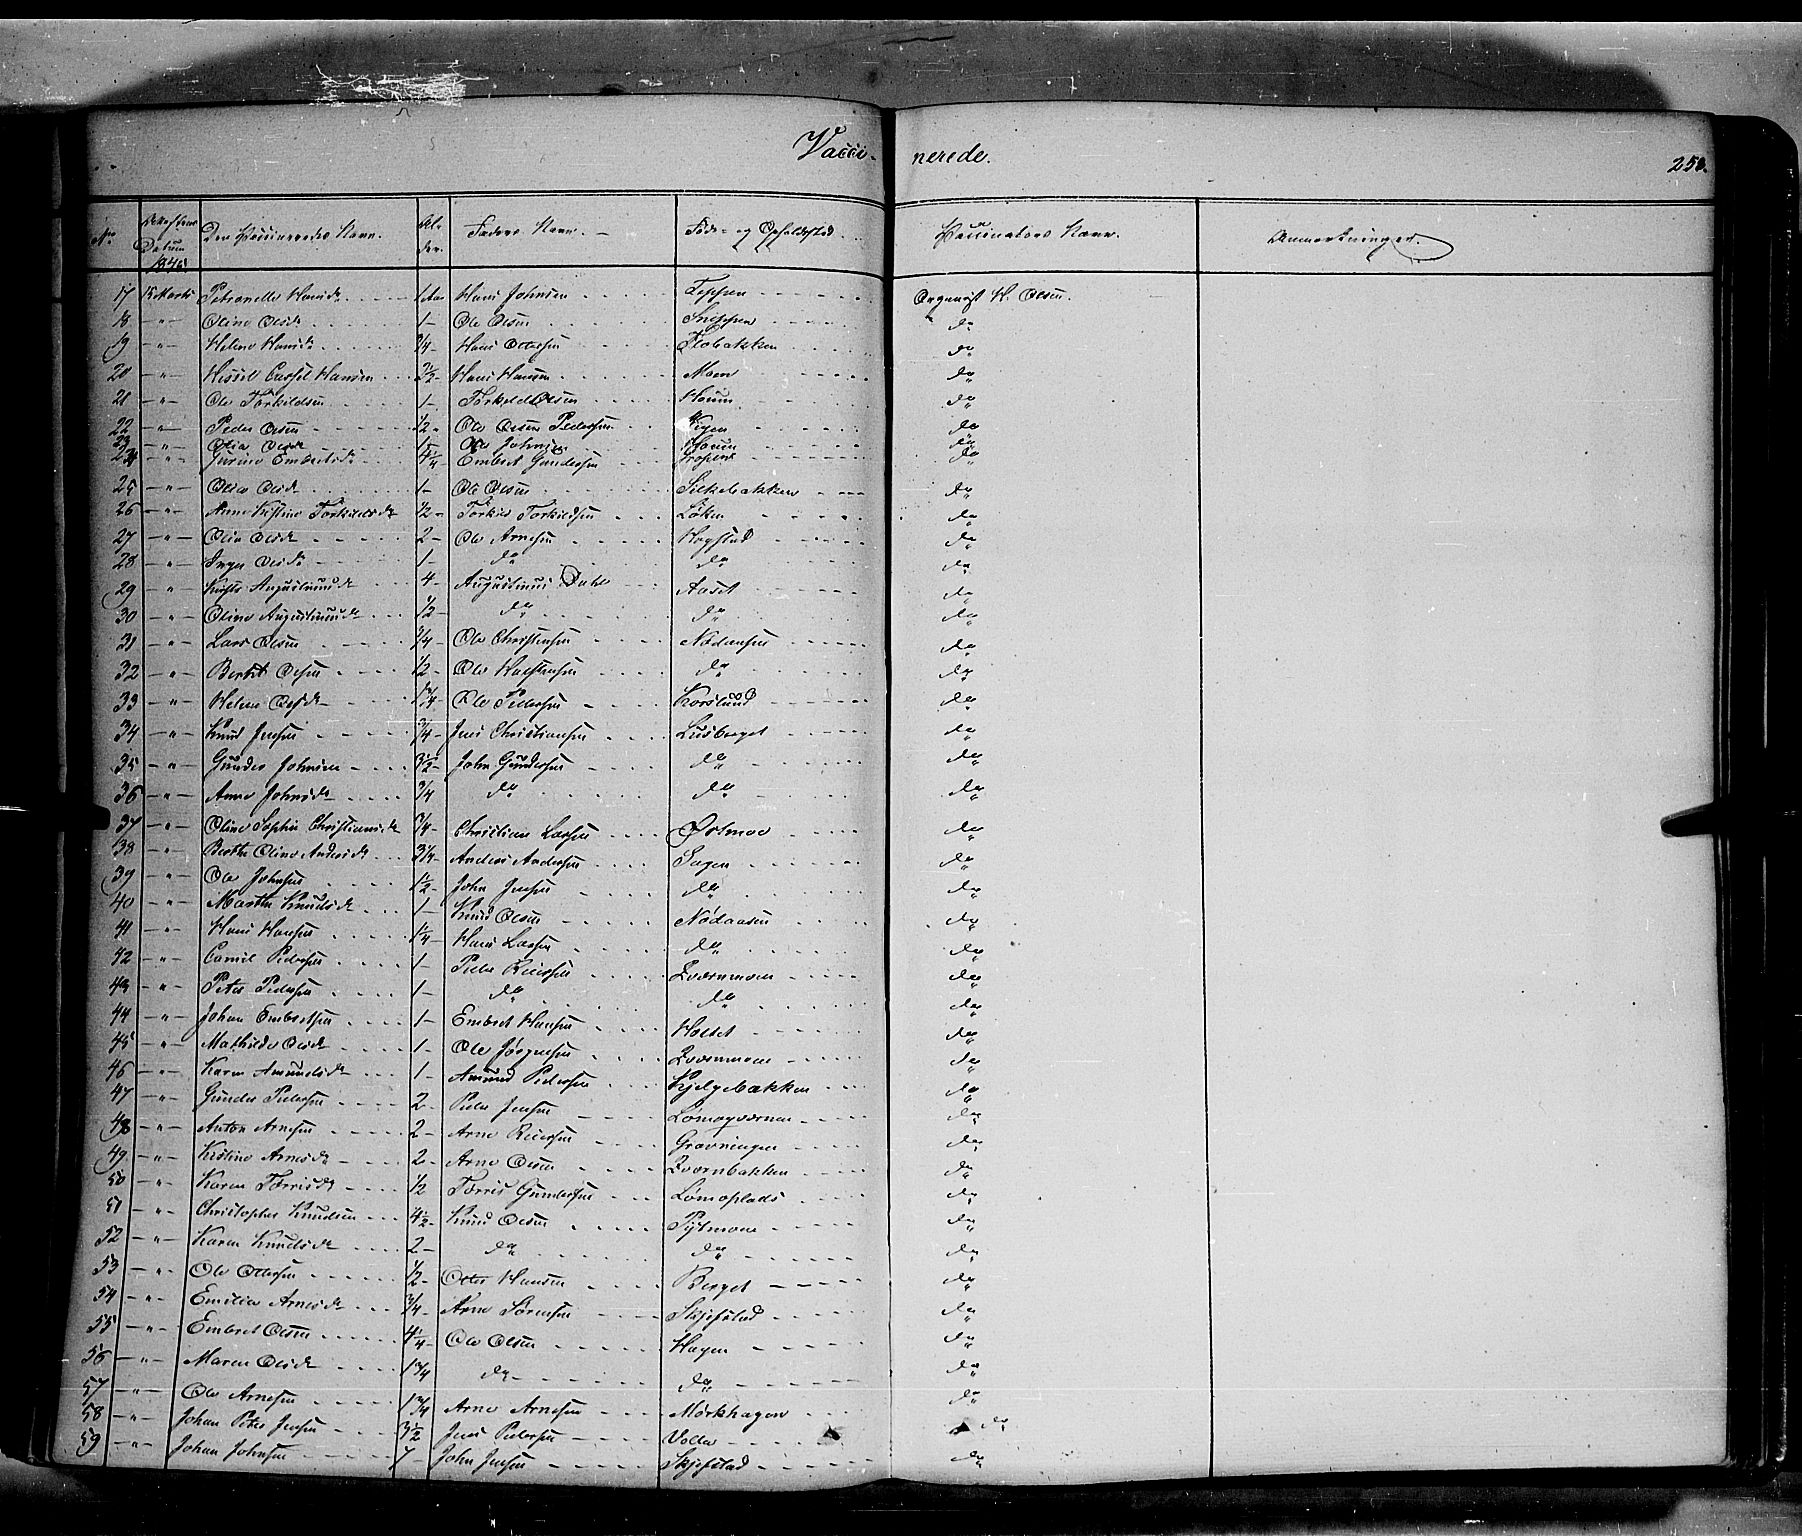 Vacci- nerede. 250.
No Datum 1846 Den Vaccineredes Navn. Al- der. Faders Navn. Føde- og Opholdssted Vaccinateurs Navn. Anmærkninger.
17 15 Marts Petronelle Hansd. 1 Aar Hans Johnsen Teppen Organist H. Olsen.
18 -"- Oline Olsd. 1- Ole Olsen Snippen do
19 -"- Helene Hansd. 3/4 Hans Ottersen Flobakken do
20 -"- Hansen 2 1/2 - Hans Hansen Moen do
21 -"- Ole Torkildsen 1- Torkild Olsen do
22 -"- Peder Olsen 1/2 - Ole Olsen Pedersen do
23 -"- Olia Olsd. Ole Johnsen do
24 -"- Gurine Embretsd. 4 1/4 Embret Gundersen do
25 -"- Olia Olsd. 1- Ole Olsen Silkebakken do
26 -"- Anne Kristine Torkildsd. 1/2 - Torkild Torkildsen Løken do
27 -"- Olia Olsd. 2- Ole Arnesen Hogstad do
28 -"- Inger Olsd. 1- do do do
29 -"- Augustinusd. 4- Augustinus Aaset do
30 -"- Oline Augustinusd. 1/2 - do do do
31 -"- Lars Olsen 3/4 Ole Christensen Nodaasen do
32 -"- Berthe Olsen 1/2 - Ole Halstensen do do
33 -"- Helene Olsd. 1 3/4 - Ole Pedersen Korslund do
34 -"- Knud Jensen 3/4 - Jens Christiansen Lusberget do
35 -"- Gunder Johnsen 3 1/2 - John Gundersen do do
36 -"- Anne Johnsd. 3/4 do do do
37 -"- Oline Sophie Christiansd. 3/4 - Christian Larsen Østmoe do
38 -"- Berthe Oline Andersd. 3 1/4 - Anders Andersen Sagen do
39 -"- Ole Johnsen 1 1/2 - John Jensen do do
40 -"- Marthe Knudsd. 1- Knud Olsen Nodaasen do
41 -"- Hans Hansen 1 1/4 - Hans Larsen do do
42 -"- Camil Pedersen 1- Peder Reiersen Qværnmoen do
43 -"- Peter Pedersen 1- do do do
44 -"- Johan Embretsen 1- Embret Hansen Holtet do
45 -"- Mathilde Olsd. 1- Ole Jørgensen Qværnmoen do
46 -"- Karen Amundsd. 1- Amund Pedersen Kjelgebakken do
47 -"- Gunder Pedersen 2- Peder Jensen Lømoqværnen do
48 -"- Anton Arnesen 2- Arne Reiersen Gravningen do
49 -"- Kristine Arnesd. 2- Arne Olsen Qværnbakken do
50 -"- Karen Torrisd. 1/2 Torris Gundersen Lømoplads do
51 -"- Christopher Knudsen 4 1/2 - Knud Olsen Pytmoen do
52 -"- Karen Knudsd. 2- do do do
53 -"- Ole Ottersen 1/2 - Otter Hansen Berget do
54 -"- Emilie Arnesd. 3/4 - Arne Sørensen Skjefstad do
55 -"- Embret Olsen 4 1/4 - Ole Olsen Hagen do
56 -"- Maren Olsd. 1 3/4 do do do
57 -"- Ole Arnesen 1 3/4 Arne Arnesen Mørkhagen do
58 -"- Johan Peter Jensen 3 1/2 Jens Pedersen Volla do
59 -"- Johan Johnsen 7 John Jensen Skjefstad do